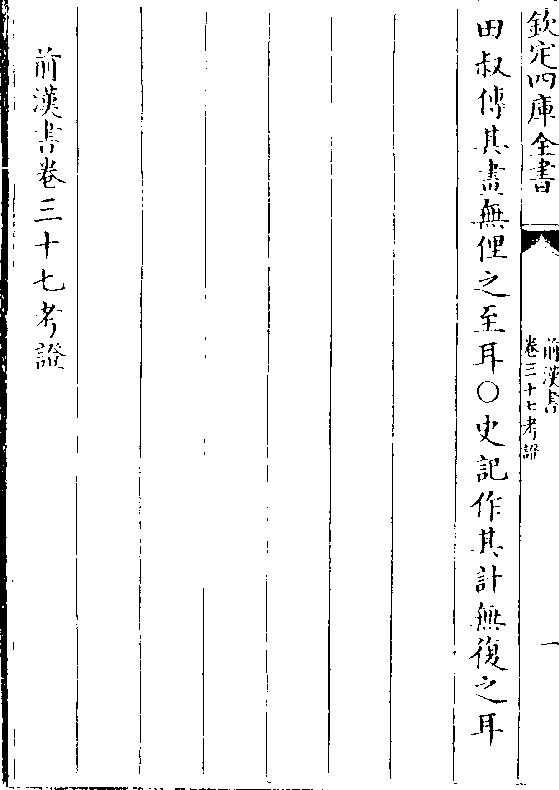 欽定四庫全書
前漢書
卷三十七考證
一
田叔傳其畫無俚之至耳○史記作其計無復之耳
前漢書卷三十七考證